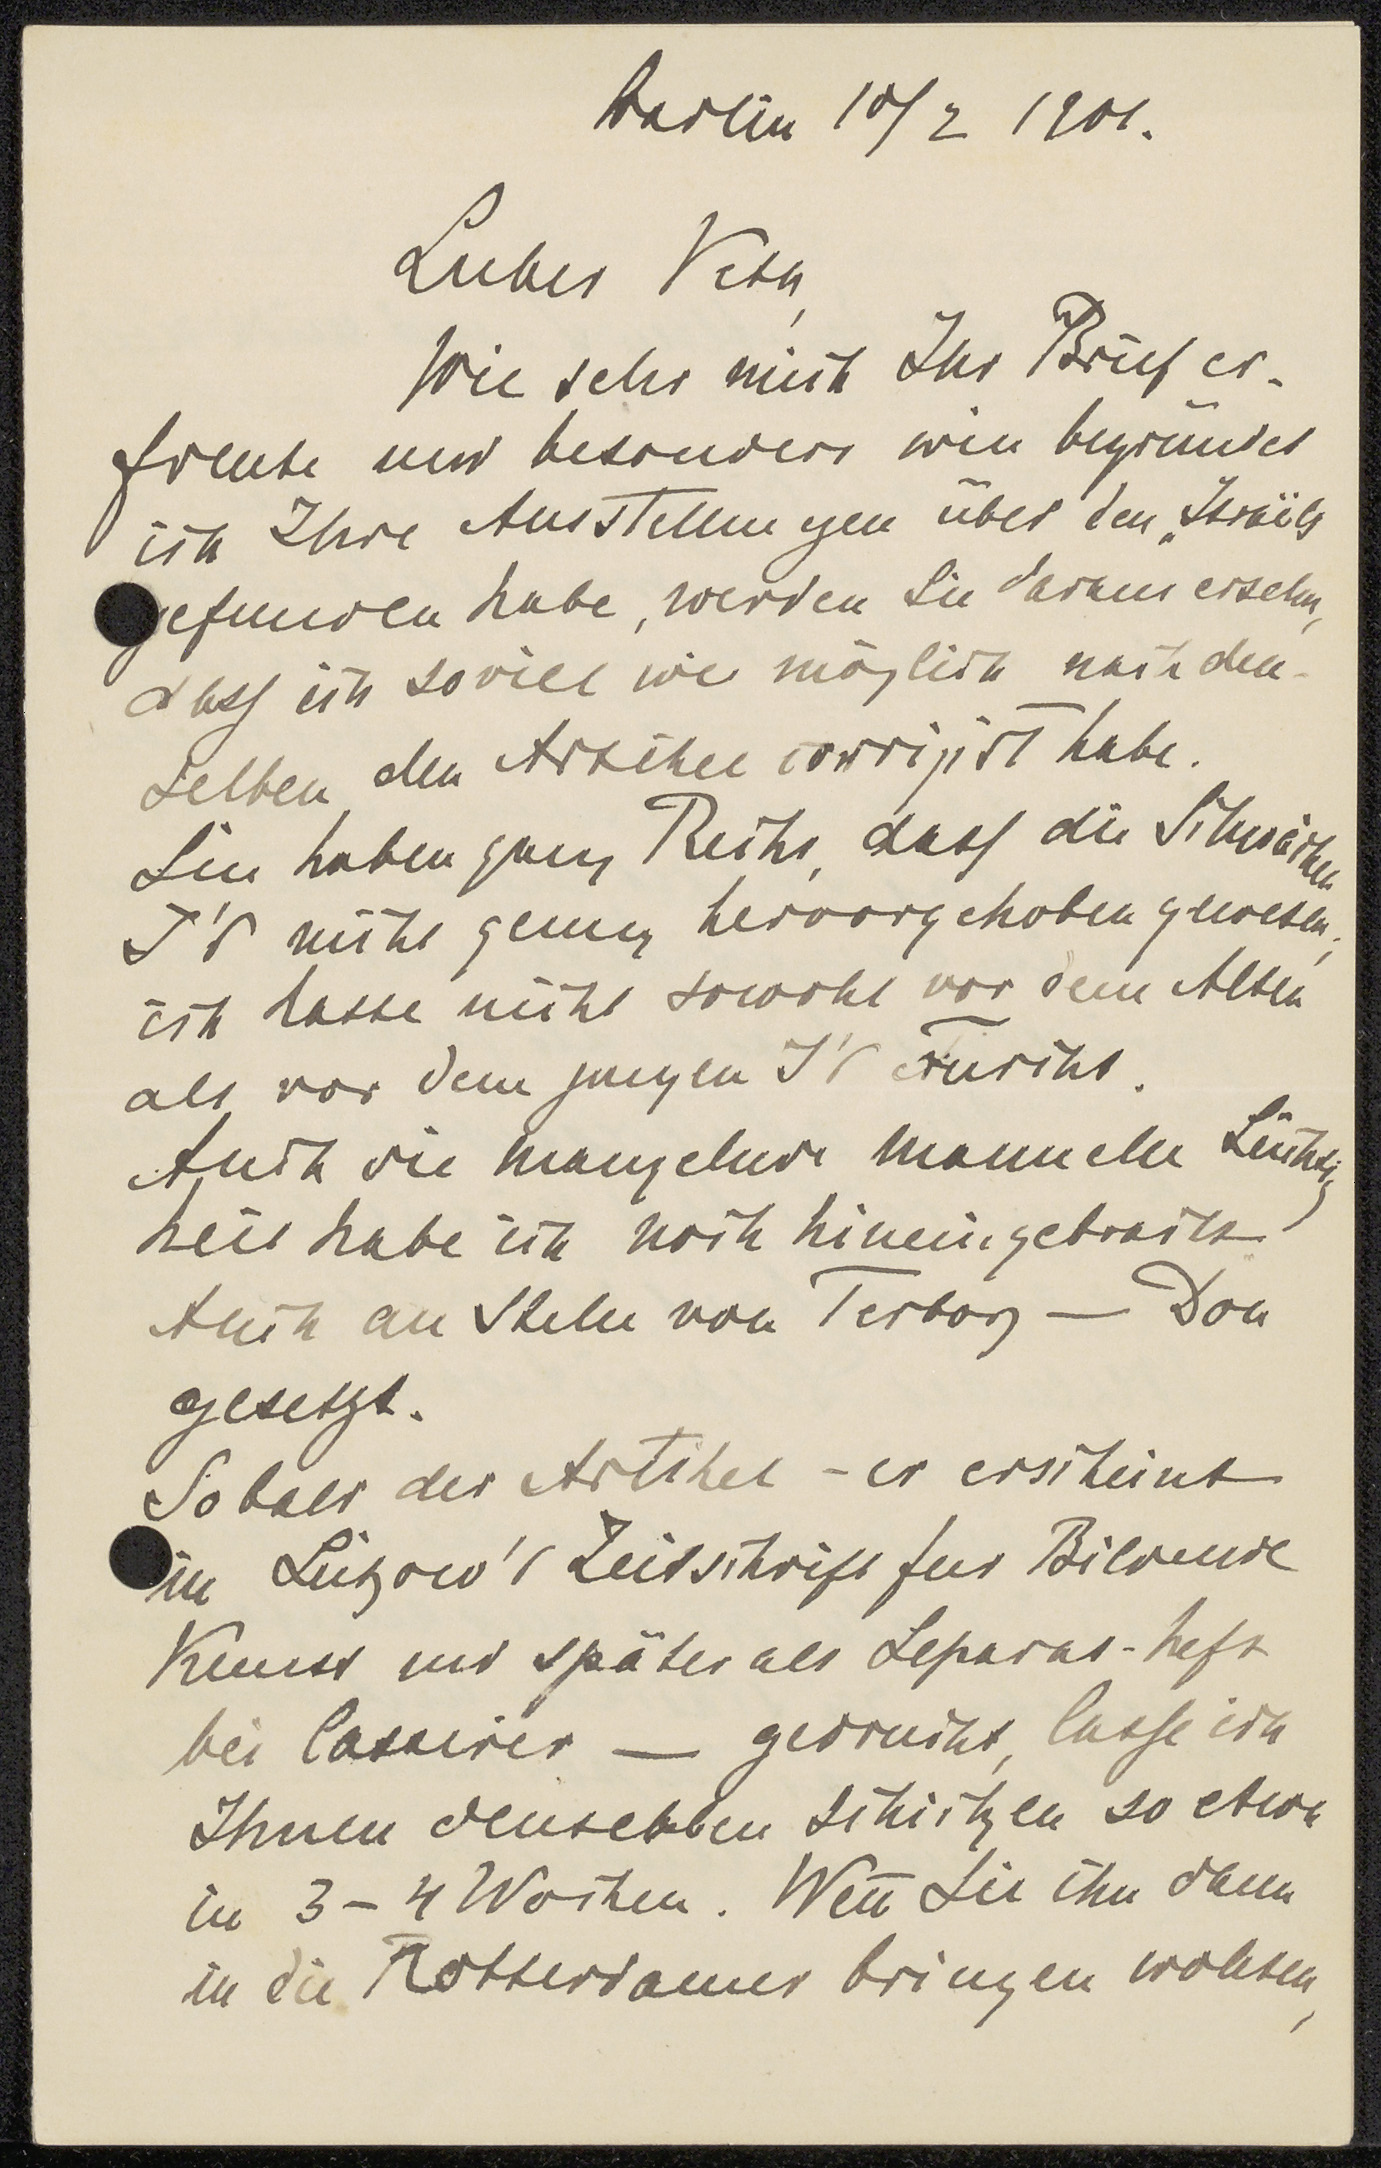 Berlin 10/2 1901.
Lieber Veth,
Wie sehr mich Ihr Brief er-
freute und besonders wie begründet
ich Ihre Ausstellungen über den „Israëls
gefunden habe, werden Sie daraus ersehn,
dass ich soviel wie möglich nach den-
selben den Artikel corrigirt habe.
Sie haben ganz Recht, dass die Schwächen
I's nicht genug hervorgehoben gewesen,
ich hatte nicht sowohl vor dem Alten
als vor dem jungen I's Furcht.
Auch die mangelnde manuelle Leichtig
keit habe ich noch hineingebracht
Auch an Stelle von Terborg — Dou
gesetzt.
Sobald der Artikel - er erscheint
in Lützow's Zeitschrift für Bildende
Kunst und später als Separat-heft
bei Cassirer — gedruckt, lasse ich
Ihnen denselben schicken so etwa
in 3-4 Wochen. Weñ Sie ihn dann
in die Rotterdamer bringen wollten,